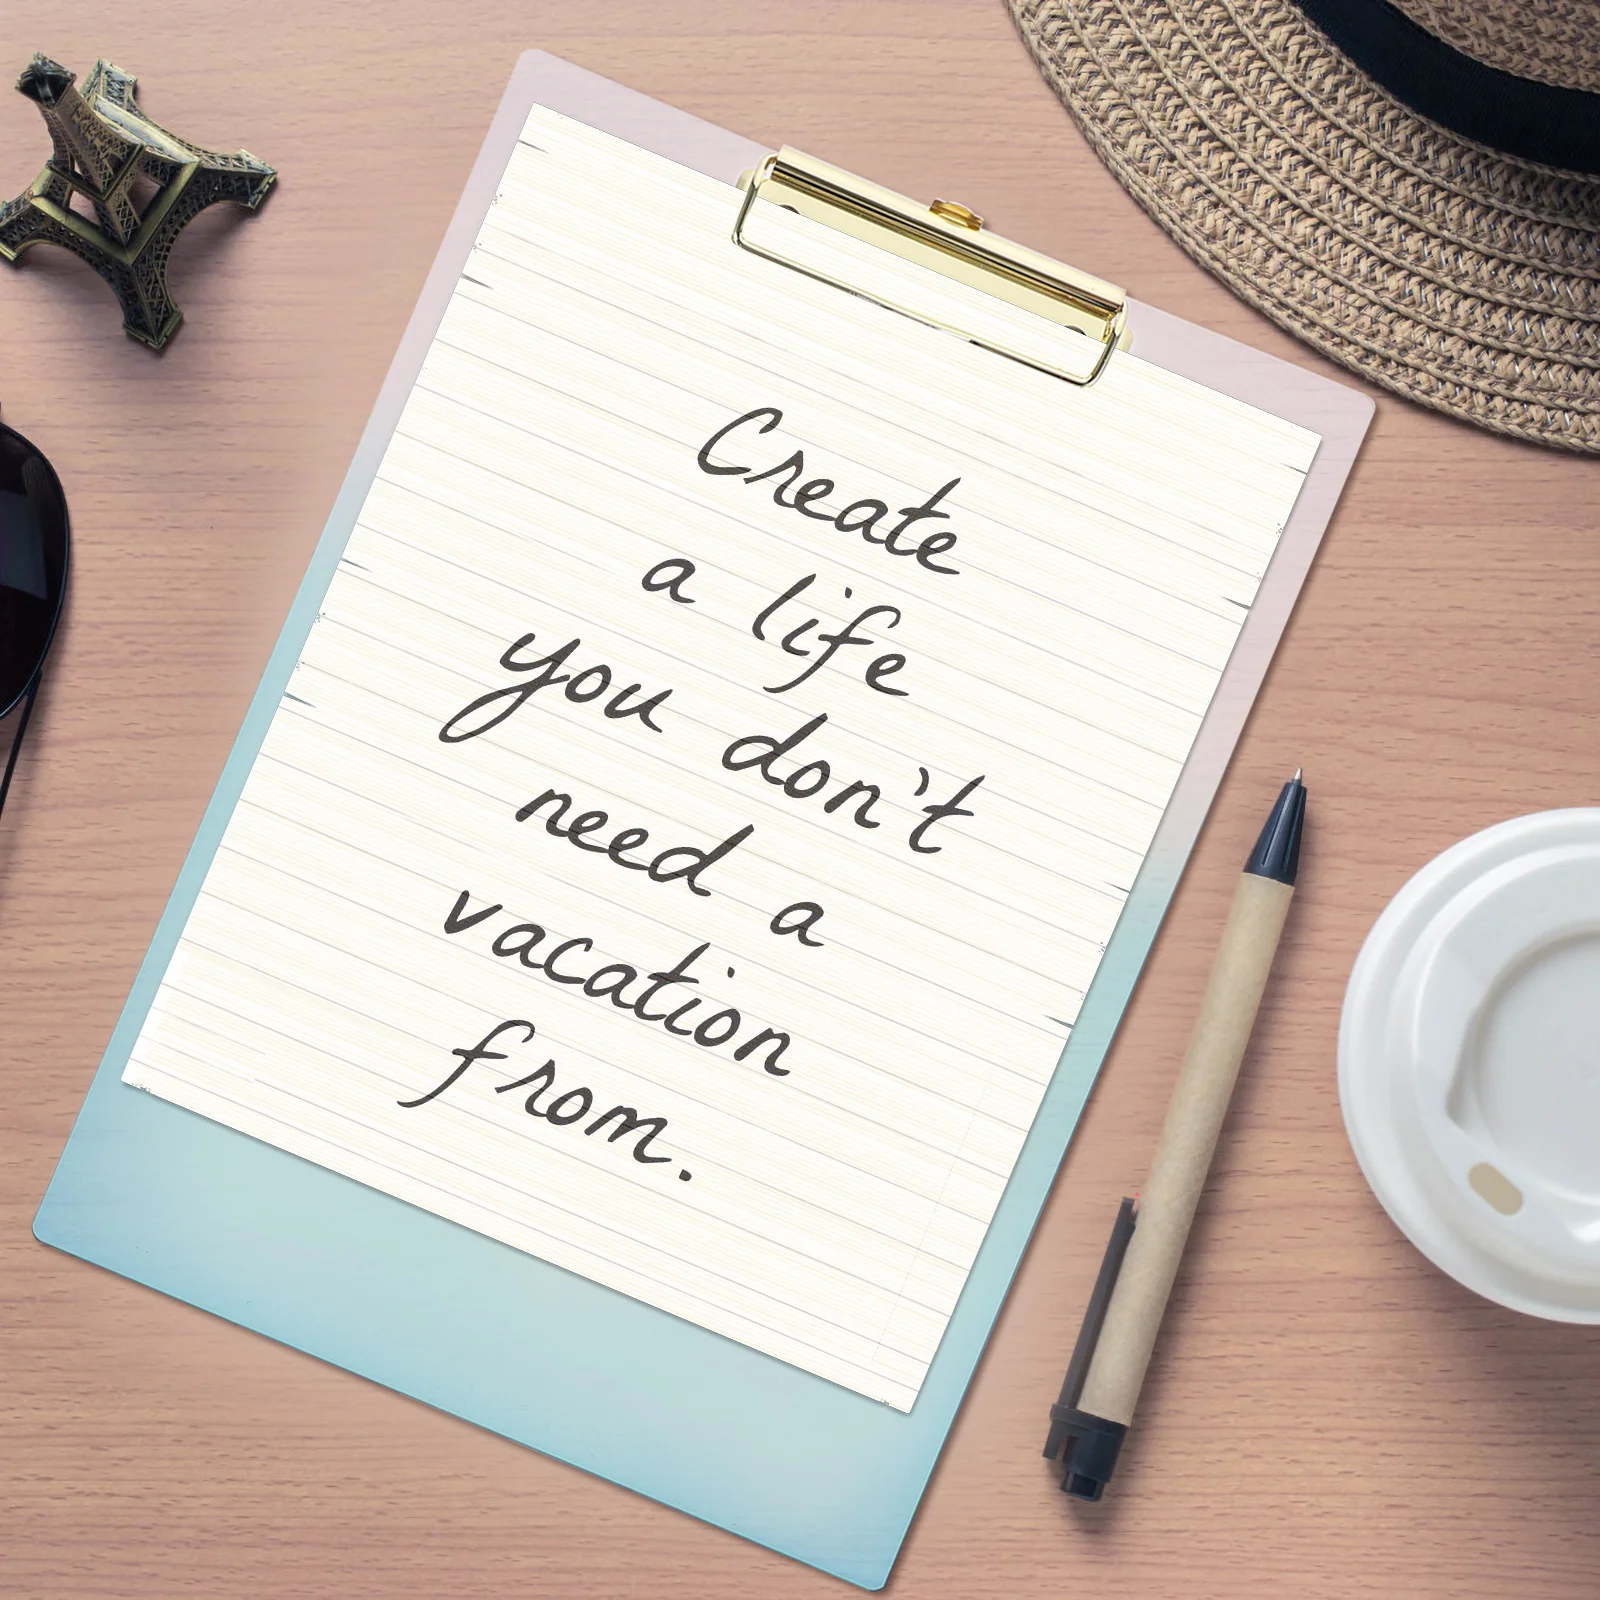 Create
a life
you don't
need a
vacation
from.